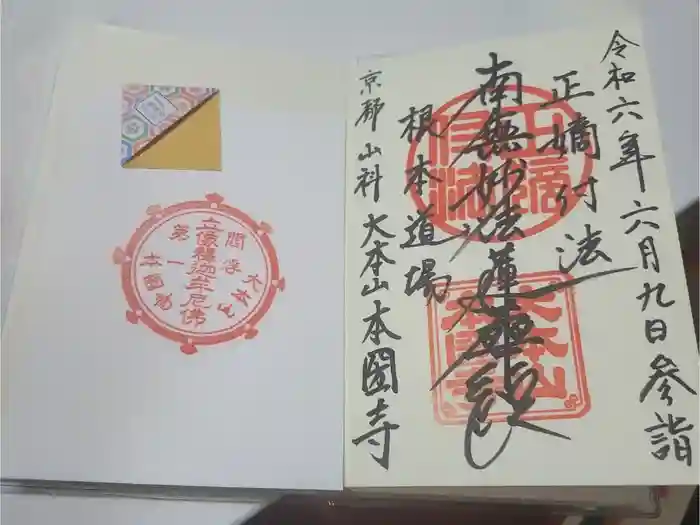 令和六年六月九日参詣
正嫡付法
南無妙法蓮華経
根本道場
京都山科 大本山本圀寺
正嫡付法
大本山本圀寺
閻浮第一
立像釋迦牟尼佛
大本山
本圀寺